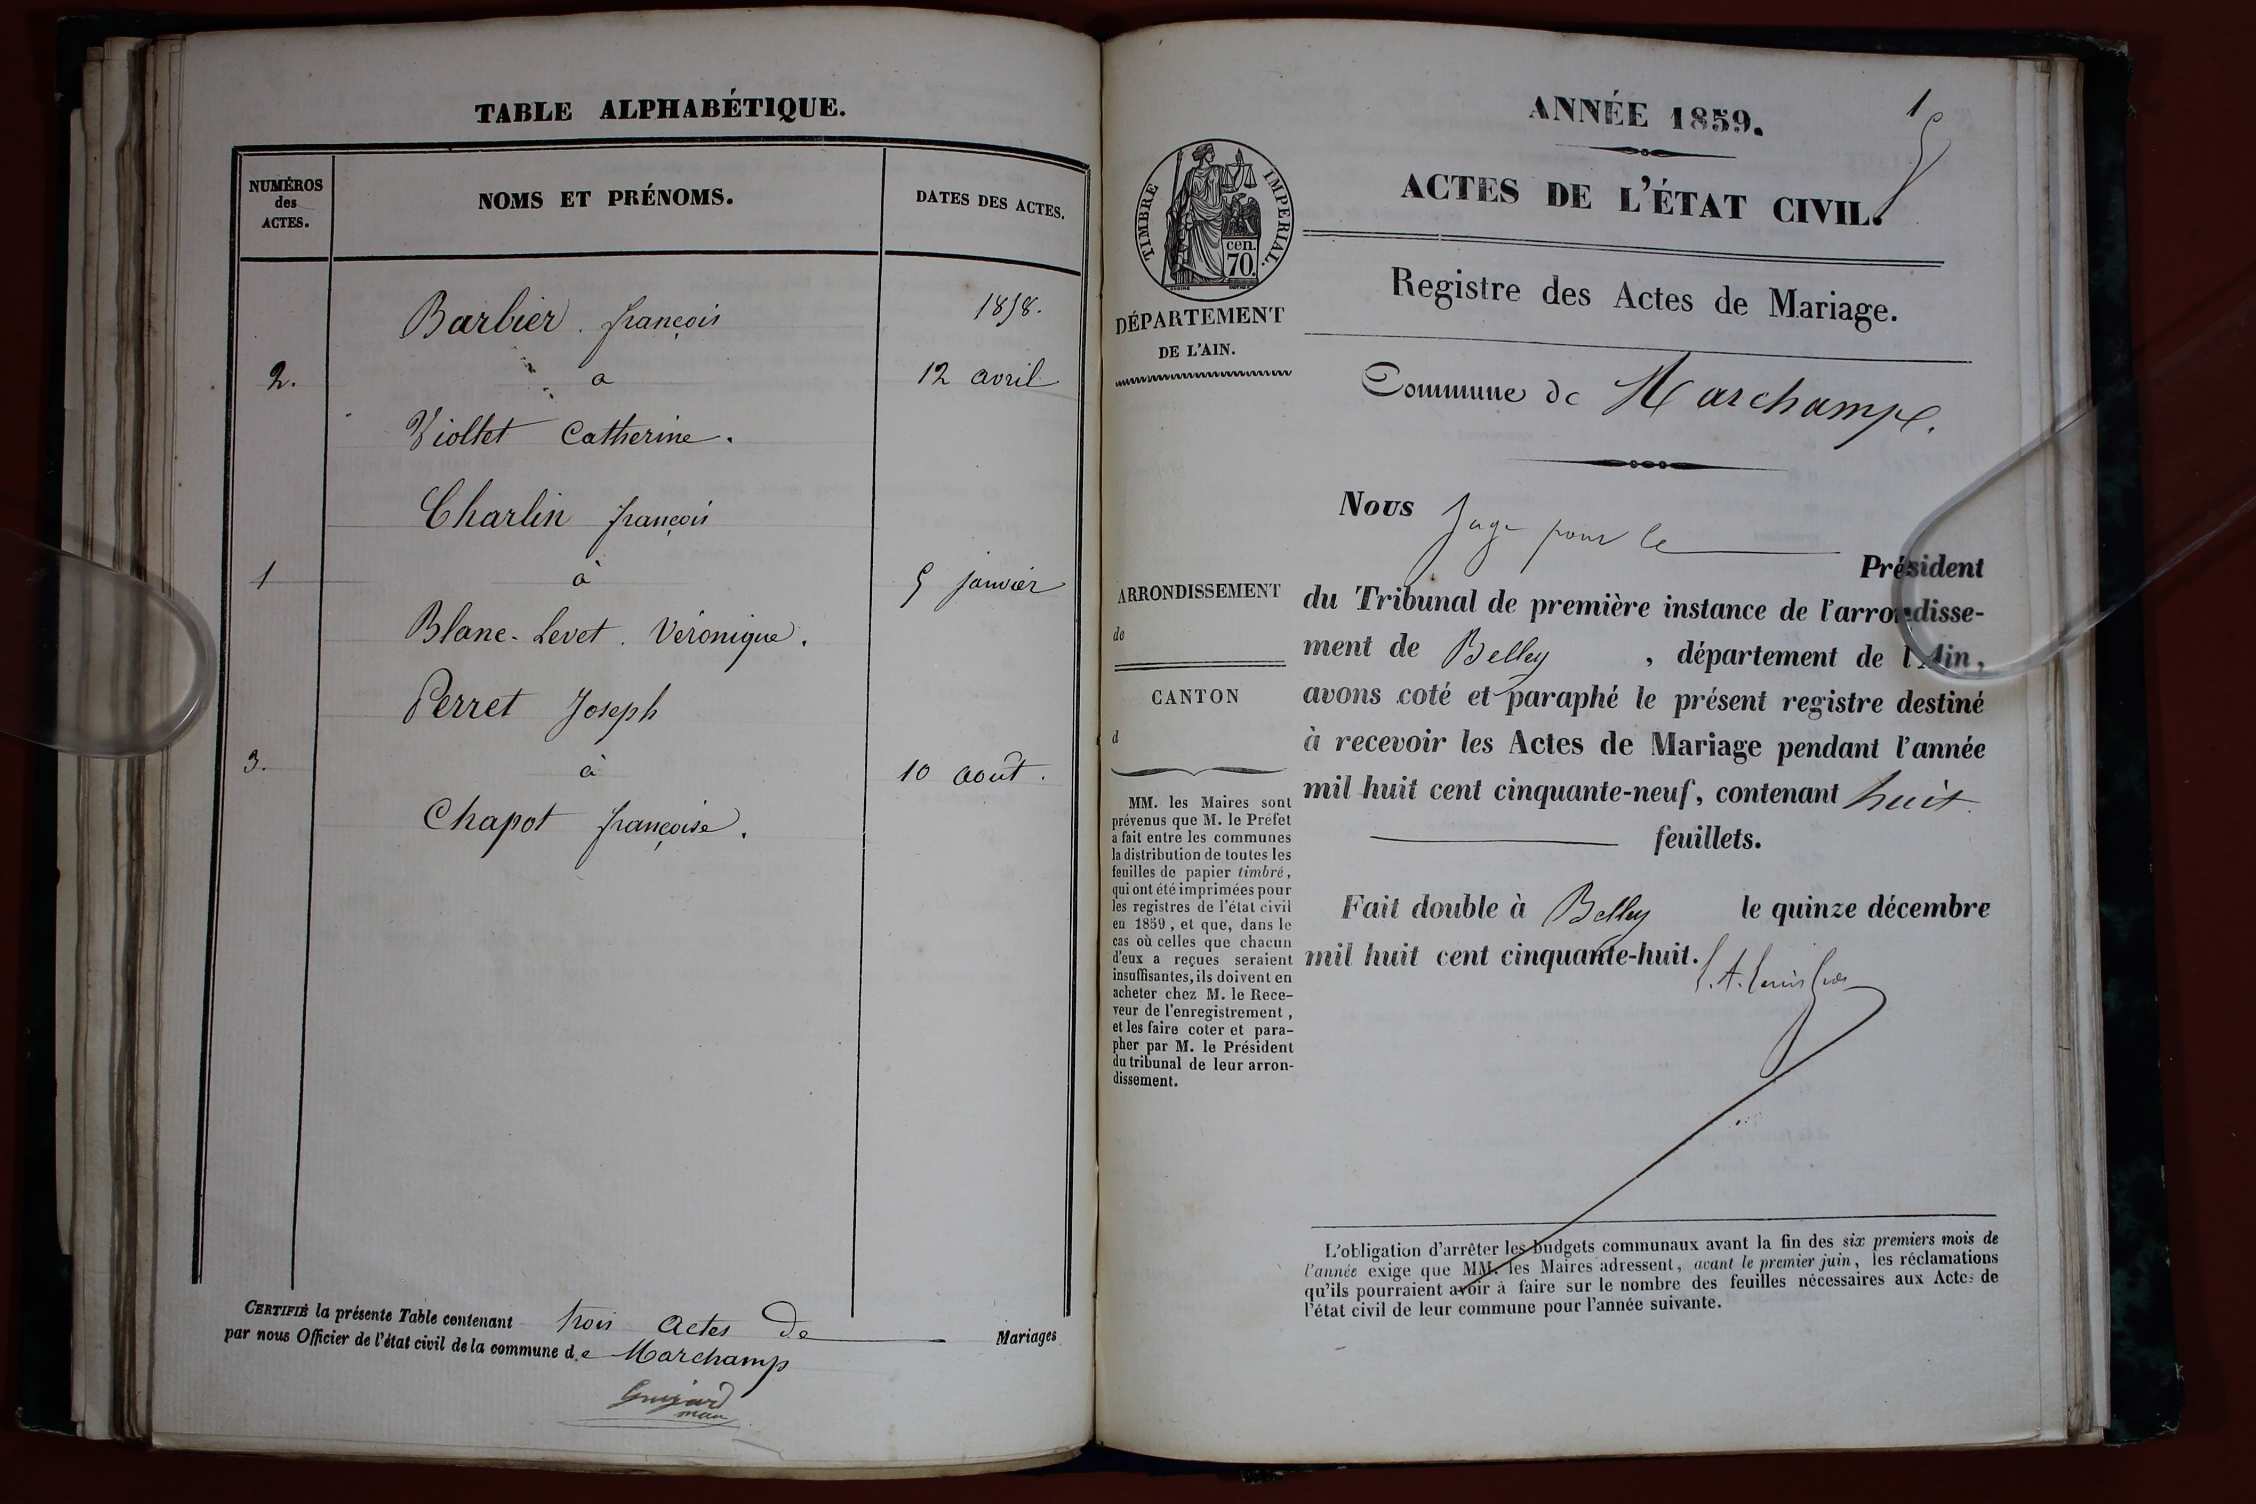 TABLE ALPHABÉTIQUE.
NUMÉROS
des
ACTES.
NOMS ET PRÉNOMS.
DATES DES ACTES.
Barbier françois
1858.
2.
a
12 avril
Viollet Catherine.
Charlin françois
1
à
5 janvier
Blanc-Levet. Véronique.
Perret Joseph
3.
à
10 août.
Chapot françoise.
CERTIFIÉ la présente Table contenant trois actes de Mariages
par nous Officier de l'état civil de la commune d.e Marchamp
Guigard
maire
ANNÉE 1859.
1
ACTES DE L'ÉTAT CIVIL.
TIMBRE IMPERIAL.
cen.
70.
Registre des Actes de Mariage.
DÉPARTEMENT
DE L'AIN.
Commune de Marchamp.
ARRONDISSEMENT
de
CANTON
d
MM. les Maires sont
prévenus que M. le Préfet
a fait entre les communes
la distribution de toutes les
feuilles de papier timbré,
qui ont été imprimées pour
les registres de l'état civil
en 1859, et que, dans le
cas où celles que chacun
d'eux a reçues seraient
insuffisantes, ils doivent en
acheter chez M. le Rece-
veur de l'enregistrement,
et les faire coter et para-
pher par M. le Président
du tribunal de leur arron-
dissement.
Nous Juge pour le
Président
du Tribunal de première instance de l'arrondisse-
ment de Belley , département de l'Ain,
avons coté et paraphé le présent registre destiné
à recevoir les Actes de Mariage pendant l'année
mil huit cent cinquante-neuf, contenant huit
feuillets.
Fait double à Belley le quinze décembre
mil huit cent cinquante-huit.
L'obligation d'arrêter les budgets communaux avant la fin des six premiers mois de
l'année exige que MM. les Maires adressent, avant le premier juin, les réclamations
qu'ils pourraient avoir à faire sur le nombre des feuilles nécessaires aux Actes de
l'état civil de leur commune pour l'année suivante.